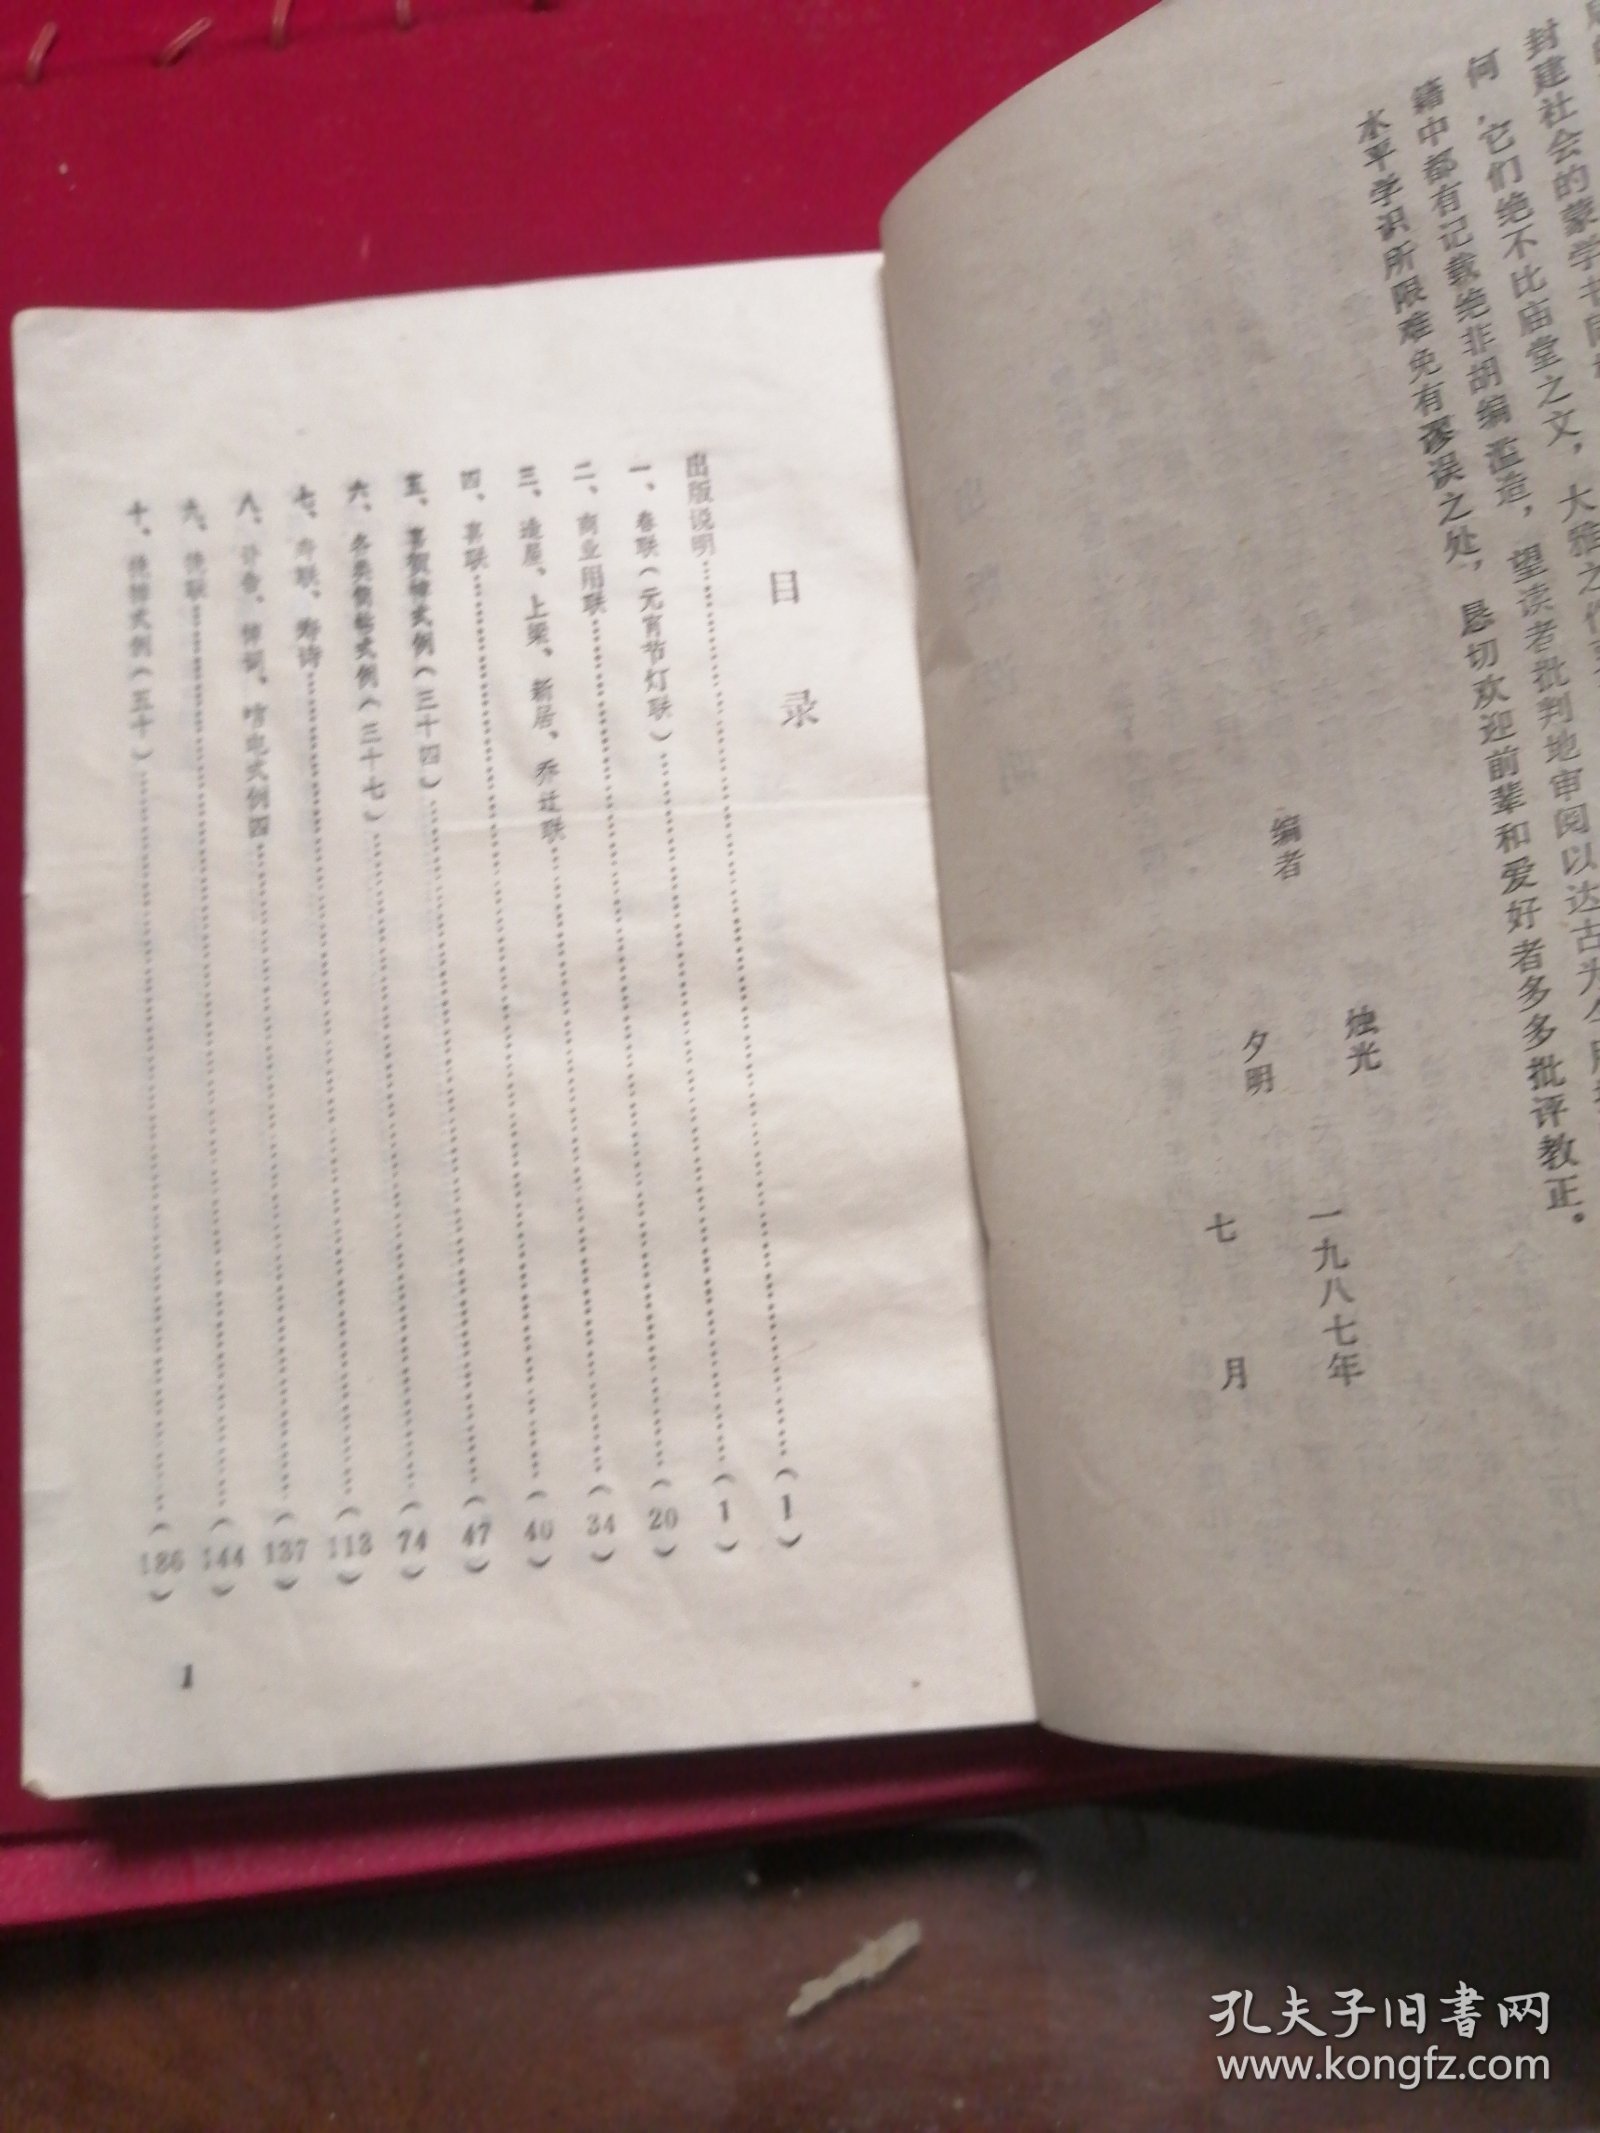 封建社会的蒙学书
何,它们绝不比庙堂之文,大雅之作
籍中都有记载绝非胡编滥造,望读者批判地审阅以达古为今用
水平学识所限难免有谬误之处,恳切欢迎前辈和爱好者多多批评教正。
编者
烛光
夕明
一九八七年
七月
目录
出版说明……(1)
一、春联(元宵节灯联)……(1)
二、商业用联……(20)
三、造屋、上梁、新居、乔迁联……(34)
四、喜联……(40)
五、喜贺帖式例(三十四)……(47)
六、各类简帖式例(三十七)……(74)
七、寿联、寿诗……(113)
八、讣告、悼词、唁电式例四……(137)
九、挽联……(144)
十、挽帖式例(五十)……(186)
1
孔夫子旧书网
www.kongfz.com